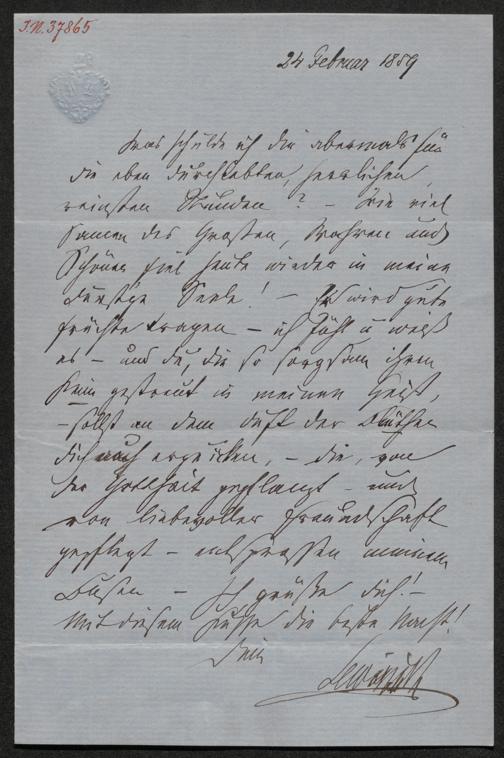 I.N. 37865
24 Februar 1859
Was schulde ich dir abermals für
die eben durchlebten, herrlichen,
reinsten Stunden? – Wie viel
Samen des Großen, Wahren und
Schönen fiel heute wieder in meine
durstige Seele! – Er wird gute
Früchte tragen – ich fühl u weiß
es – und du, die so sorgsam ihren
Keim gestreut in meinen Geist,
– sollst an dem Duft der Blüthen
dich auch erquicken, – die, von
der Gottheit gepflanzt – und
von liebevoller Freundschaft
gepflegt – entsprossen meinem
Busen – Ich grüße dich! –
Mit diesem Gruße die beste Nacht!
Dein
Lewinsky